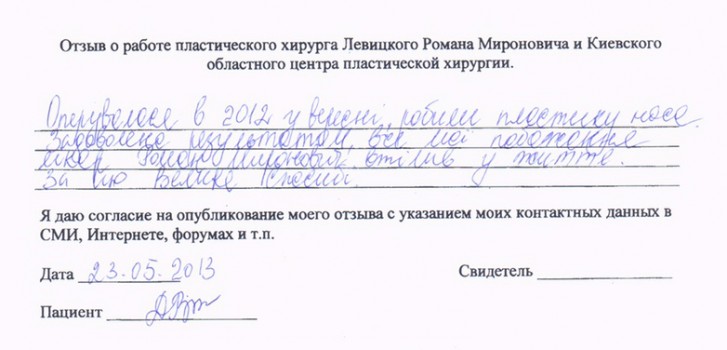 Отзыв о работе пластического хирурга Левицкого Романа Мироновича и Киевского
областного центра пластической хирургии.
Оперувалася в 2012 у вересні, робили пластику носа.
Задоволена результатом, все мої побажання
лікар Роман Миронович втілив у життя.
За що Велике Спасибі.
Я даю согласие на опубликование моего отзыва с указанием моих контактных данных в
СМИ, Интернете, форумах и т.п.
Дата 23.05.2013 Свидетель
Пациент